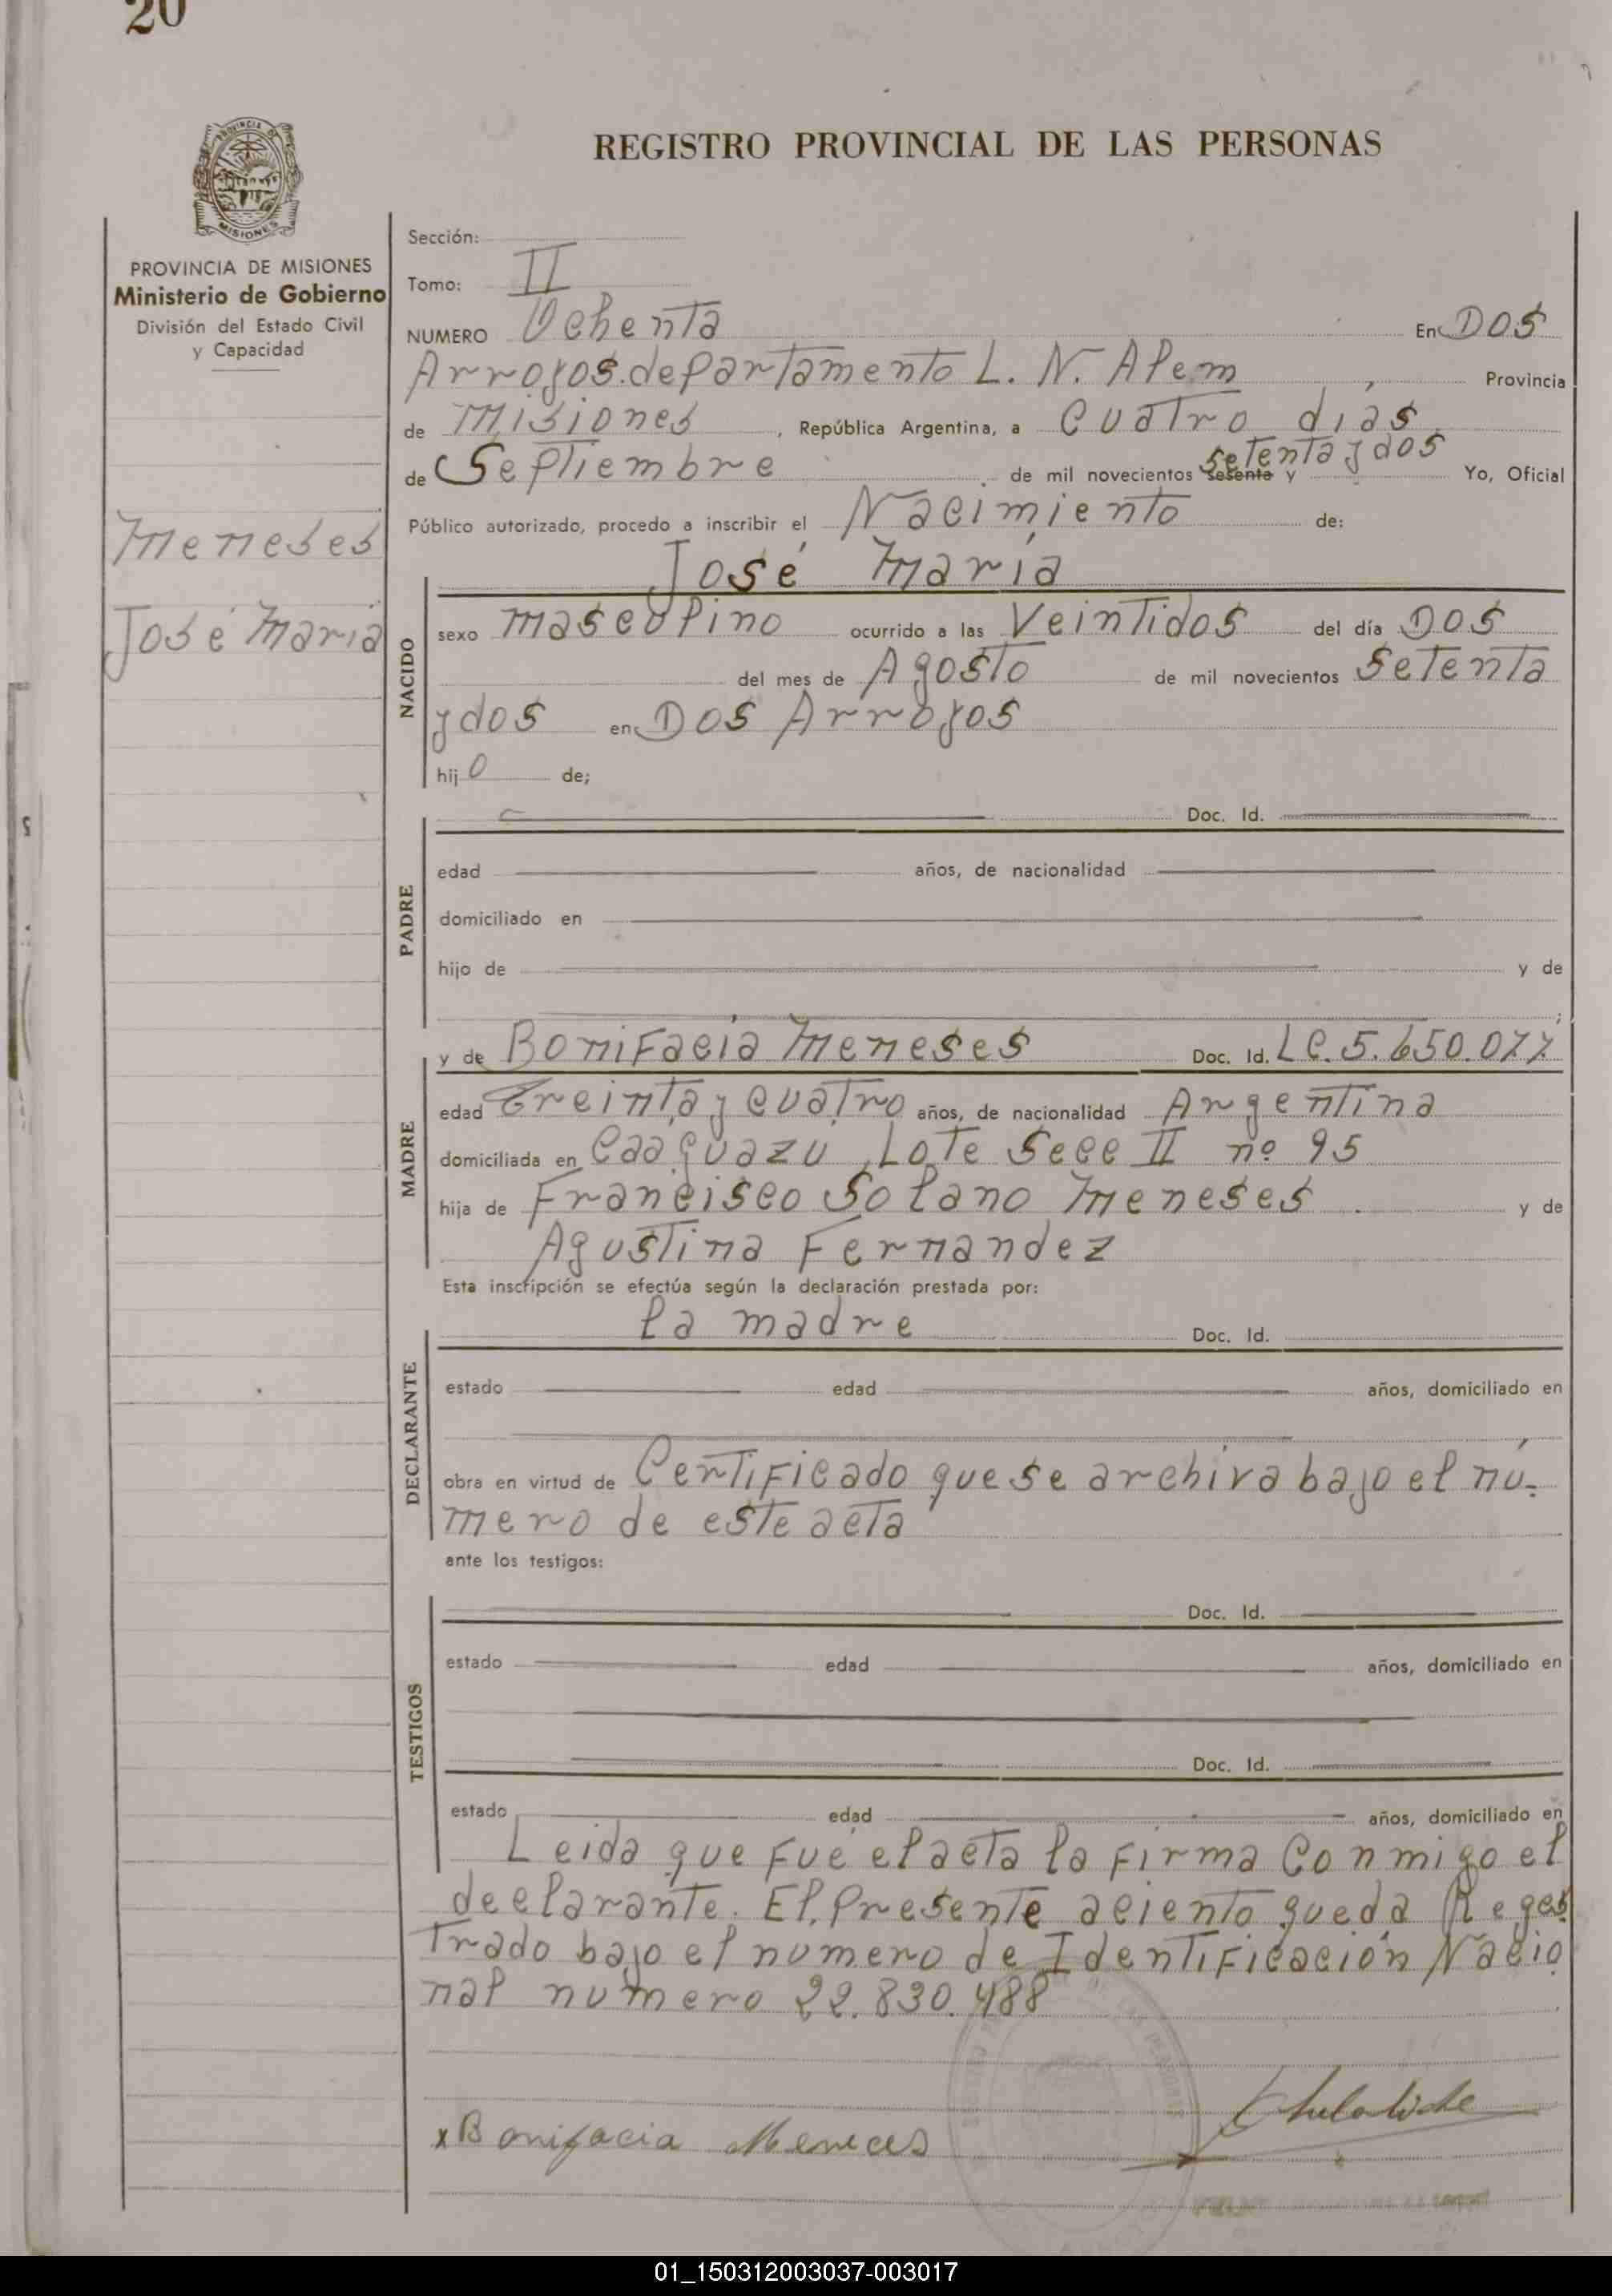 20
REGISTRO PROVINCIAL DE LAS PERSONAS
PROVINCIA DE MISIONES
Ministerio de Gobierno
División del Estado Civil
y Capacidad
Meneses
José María
Sección:
Tomo: II
NUMERO Ochenta En Dos
Arroyos. departamento L. N. Alem, Provincia
de Misiones, República Argentina, a cuatro días
de Septiembre de mil novecientos sesenta y setenta y dos Yo, Oficial
Público autorizado, procedo a inscribir el Nacimiento de:
José María
NACIDO
sexo masculino ocurrido a las Veintidos del día Dos
del mes de Agosto de mil novecientos setenta
y dos en Dos Arroyos
hijo de;
PADRE
Doc. Id.
edad años, de nacionalidad
domiciliado en
hijo de y de
;
MADRE
y de Bonifacia Meneses Doc. Id. LC. 5.650.077
edad Treinta y cuatro años, de nacionalidad Argentina
domiciliada en Caaguazu, Lote Secc II nº 95
hija de Francisco Solano Meneses y de
Agustina Fernandez
Esta inscripción se efectúa según la declaración prestada por:
DECLARANTE
la madre Doc. Id.
estado edad años, domiciliado en
obra en virtud de Certificado que se archiva bajo el nú-
mero de este acta
ante los testigos:
TESTIGOS
Doc. Id.
estado edad años, domiciliado en
Doc. Id.
estado edad años, domiciliado en
Leida que fué el acta la firma conmigo el
declarante. El presente aciento queda Reges
trado bajo el numero de Identificación Nacio
nal numero 22.830.488
x Bonifacia Meneces
01_150312003037-003017